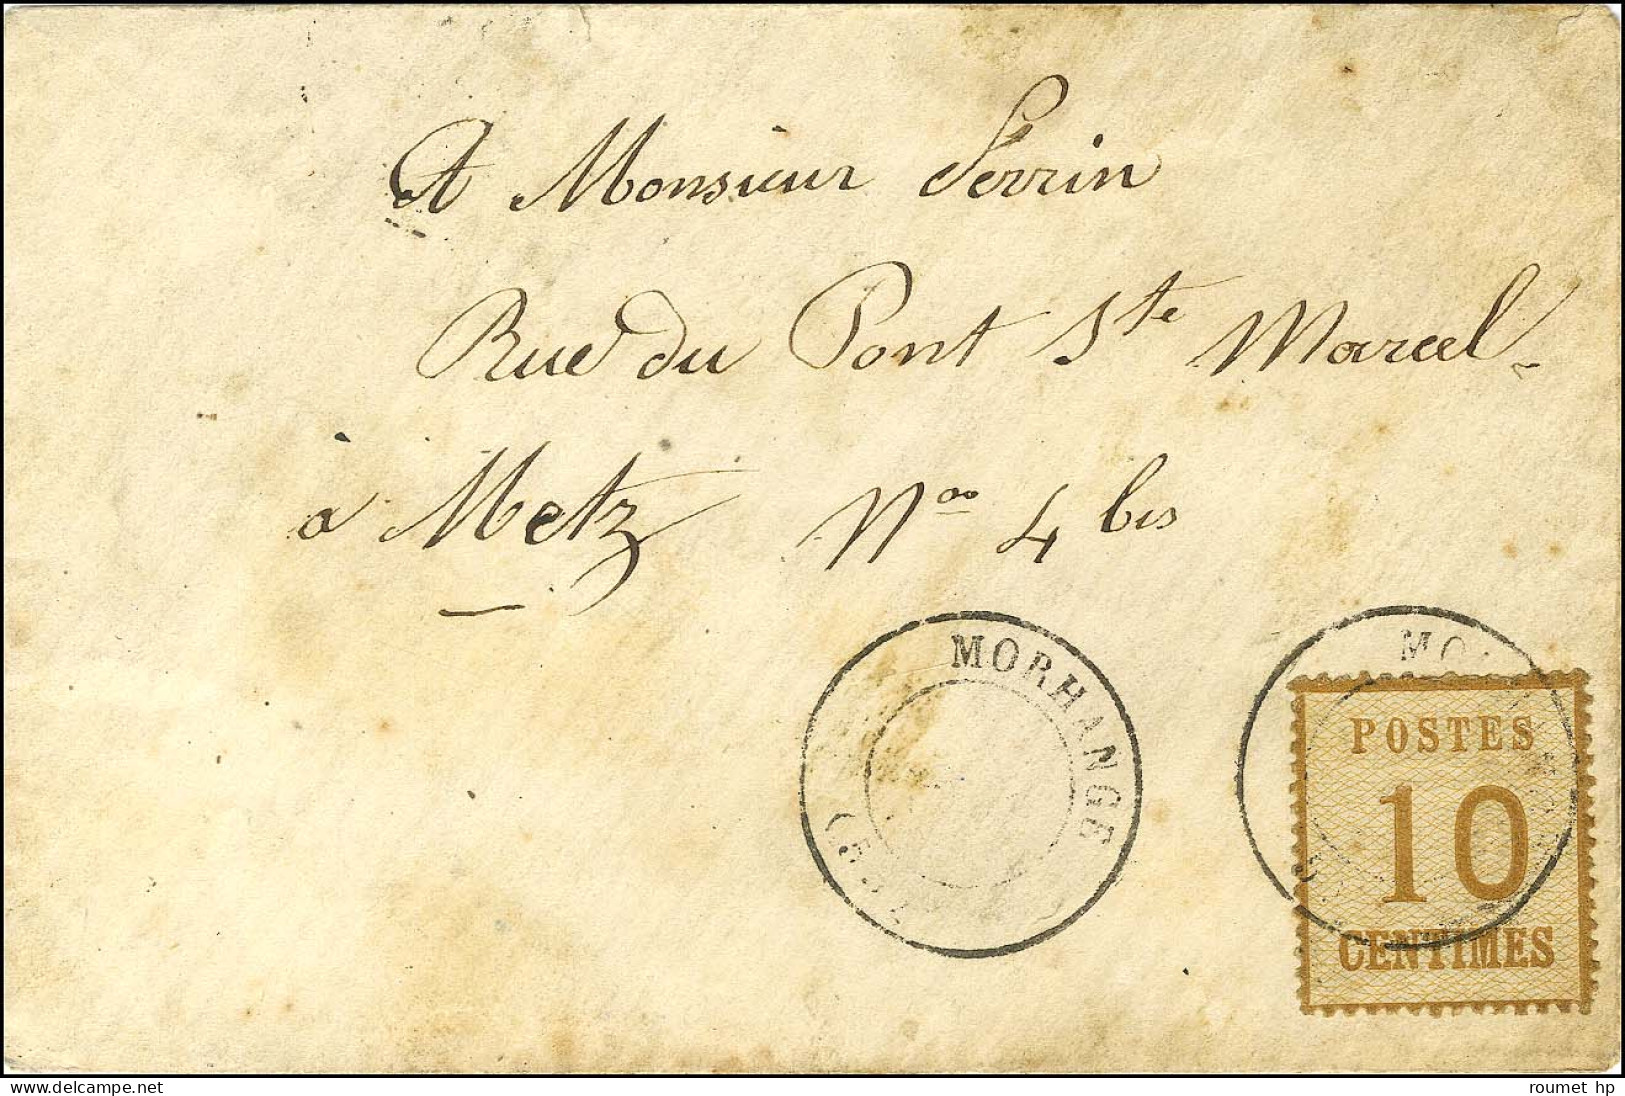 A Monsieur Perrin
Rue du Pont Ste Marcel
à Metz Nro 4 bis
MORHANGE
MO
POSTES
10
CENTIMES
delcampe.net
roumet hp